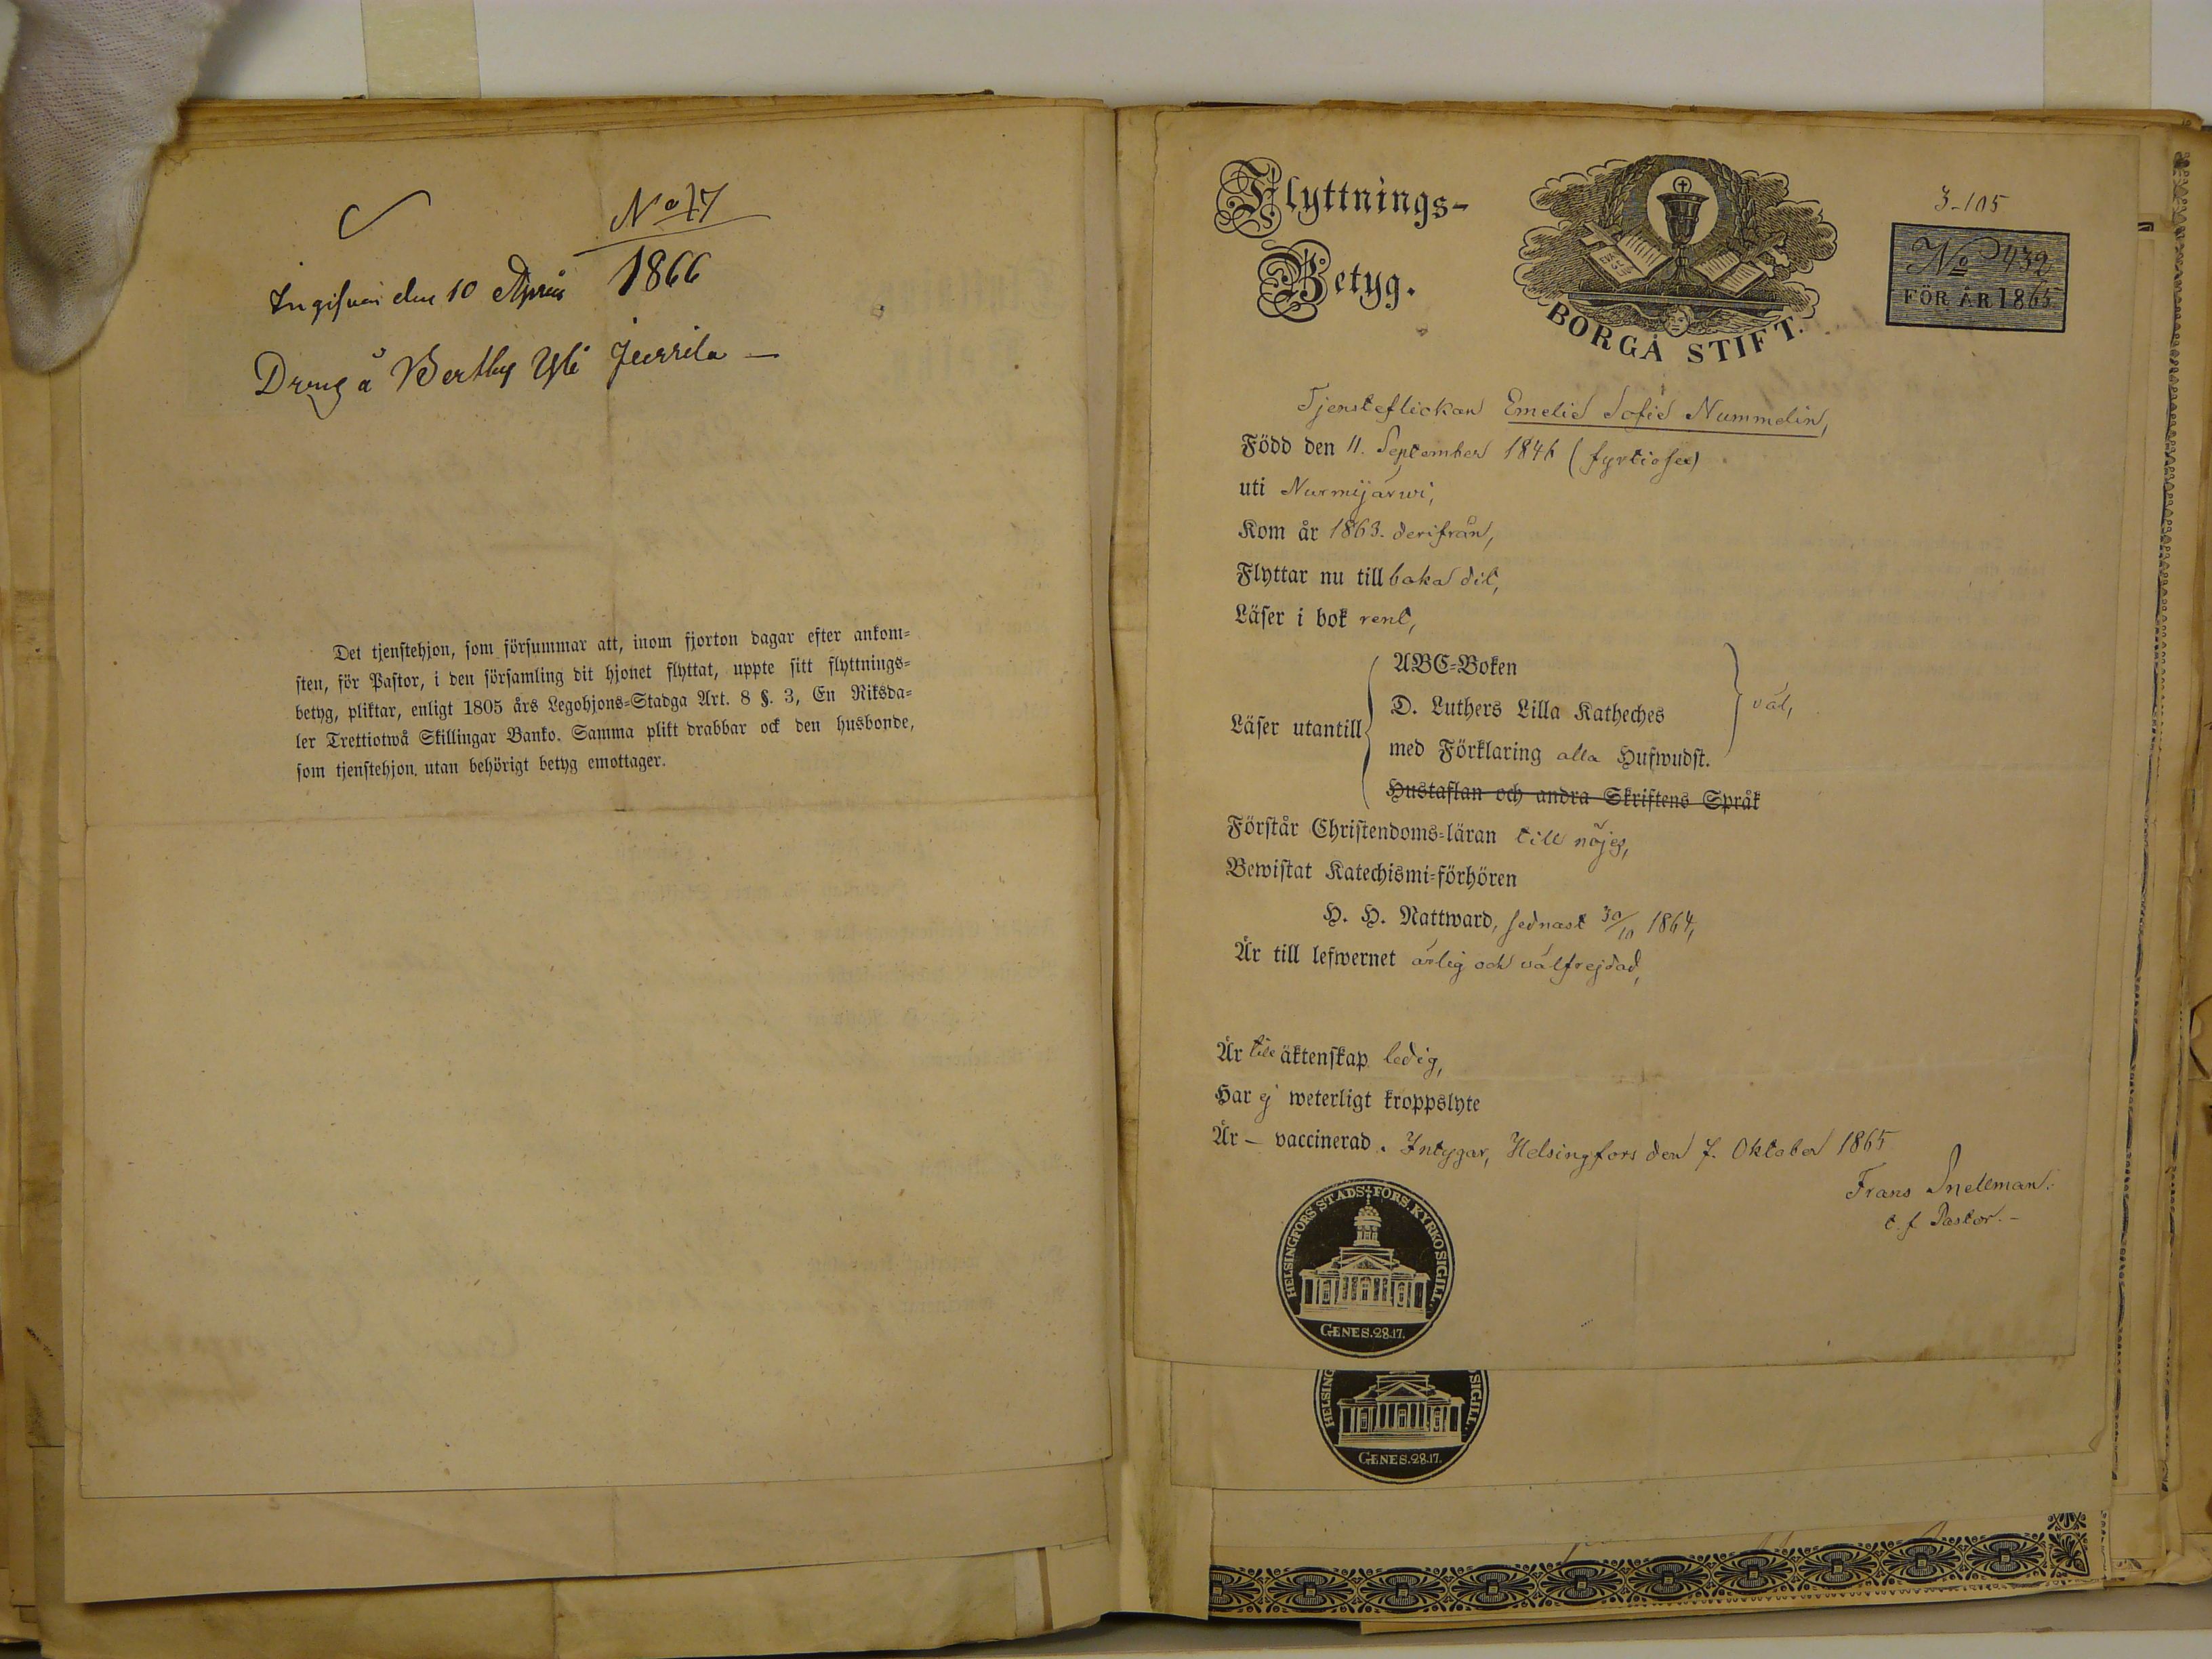 No 77
Ingifven den 10 April 1866
Dreng å Bertby Yli Jussila —
Det tjenstehjon, som försummar att, inom fjorton dagar efter ankom-
sten, för Pastor, i den församling dit hjonet flyttat, uppte sitt flyttnings-
betyg, pliktar, enligt 1805 års Legohjons-Stadga Art. 8 §. 3, En Riksda-
ler Trettiotwå Skillingar Banko. Samma plikt drabbar ock den husbonde,
som tjenstehjon, utan behörigt betyg emottager.
Flyttnings-
Betyg.
BORGÅ STIFT.
3-105
No 432
FÖR ÅR 1865.
Tjensteflickan Emelie Sofie Nummelin,
Född den 11. September 1846 (fyrtiosex)
uti Nurmijärwi,
Kom år 1863. derifrån,
Flyttar nu till baka dit,
Läser i bok rent,
Läser utantill
ABC-Boken
D. Luthers Lilla Katheches
med Förklaring alla Hufwudst.
väl,
Hustaflan och andra Skriftens Språk
Förstår Christendoms-läran till nöjes,
Bewistat Katechismi-förhören
H. H. Nattward, sednast 30/10 1864,
Är till lefwernet ärlig och välfrejdad,
Är till äktenskap ledig,
Har ej weterligt kroppslyte
Är — vaccinerad. Intygar, Helsingfors den 7. Oktober 1865
Frans Snellman.
t. f. Pastor. —
HELSINGFORS STADS FÖRS. KYRKO SIGILL.
GENES. 28.17.
HELSING
SIGILL.
GENES. 28.17.